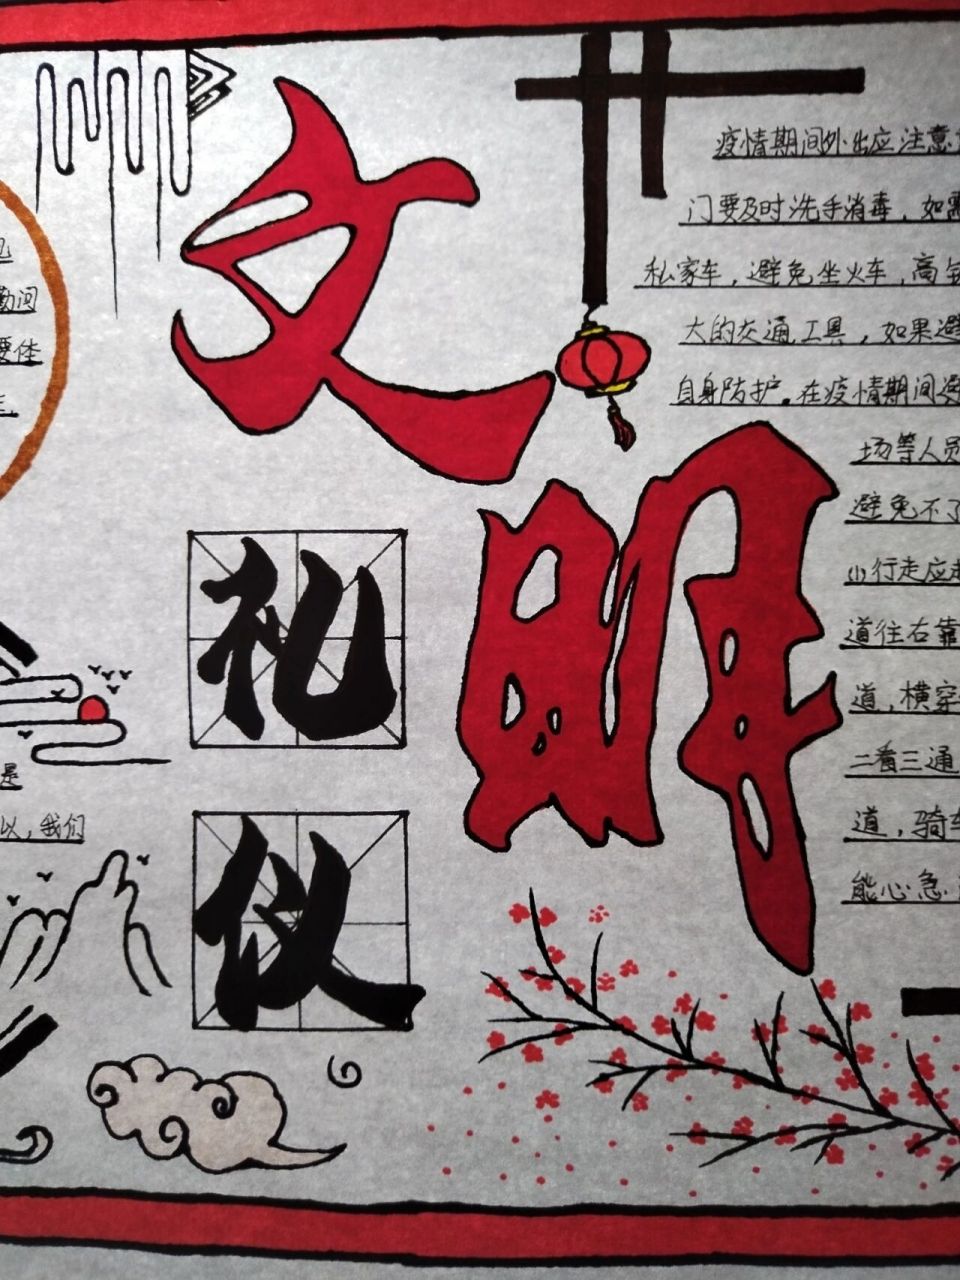 文明
礼仪
疫情期间外出应注意
门要及时洗手消毒，如需
私家车，避免坐火车，高铁
大的交通工具，如果避
自身防护。在疫情期间避
场等人员
避免不了
小行走应走
道往右靠
道，横穿
二看三通
道，骑车
能心急
勤问
要佳
是
以，我们